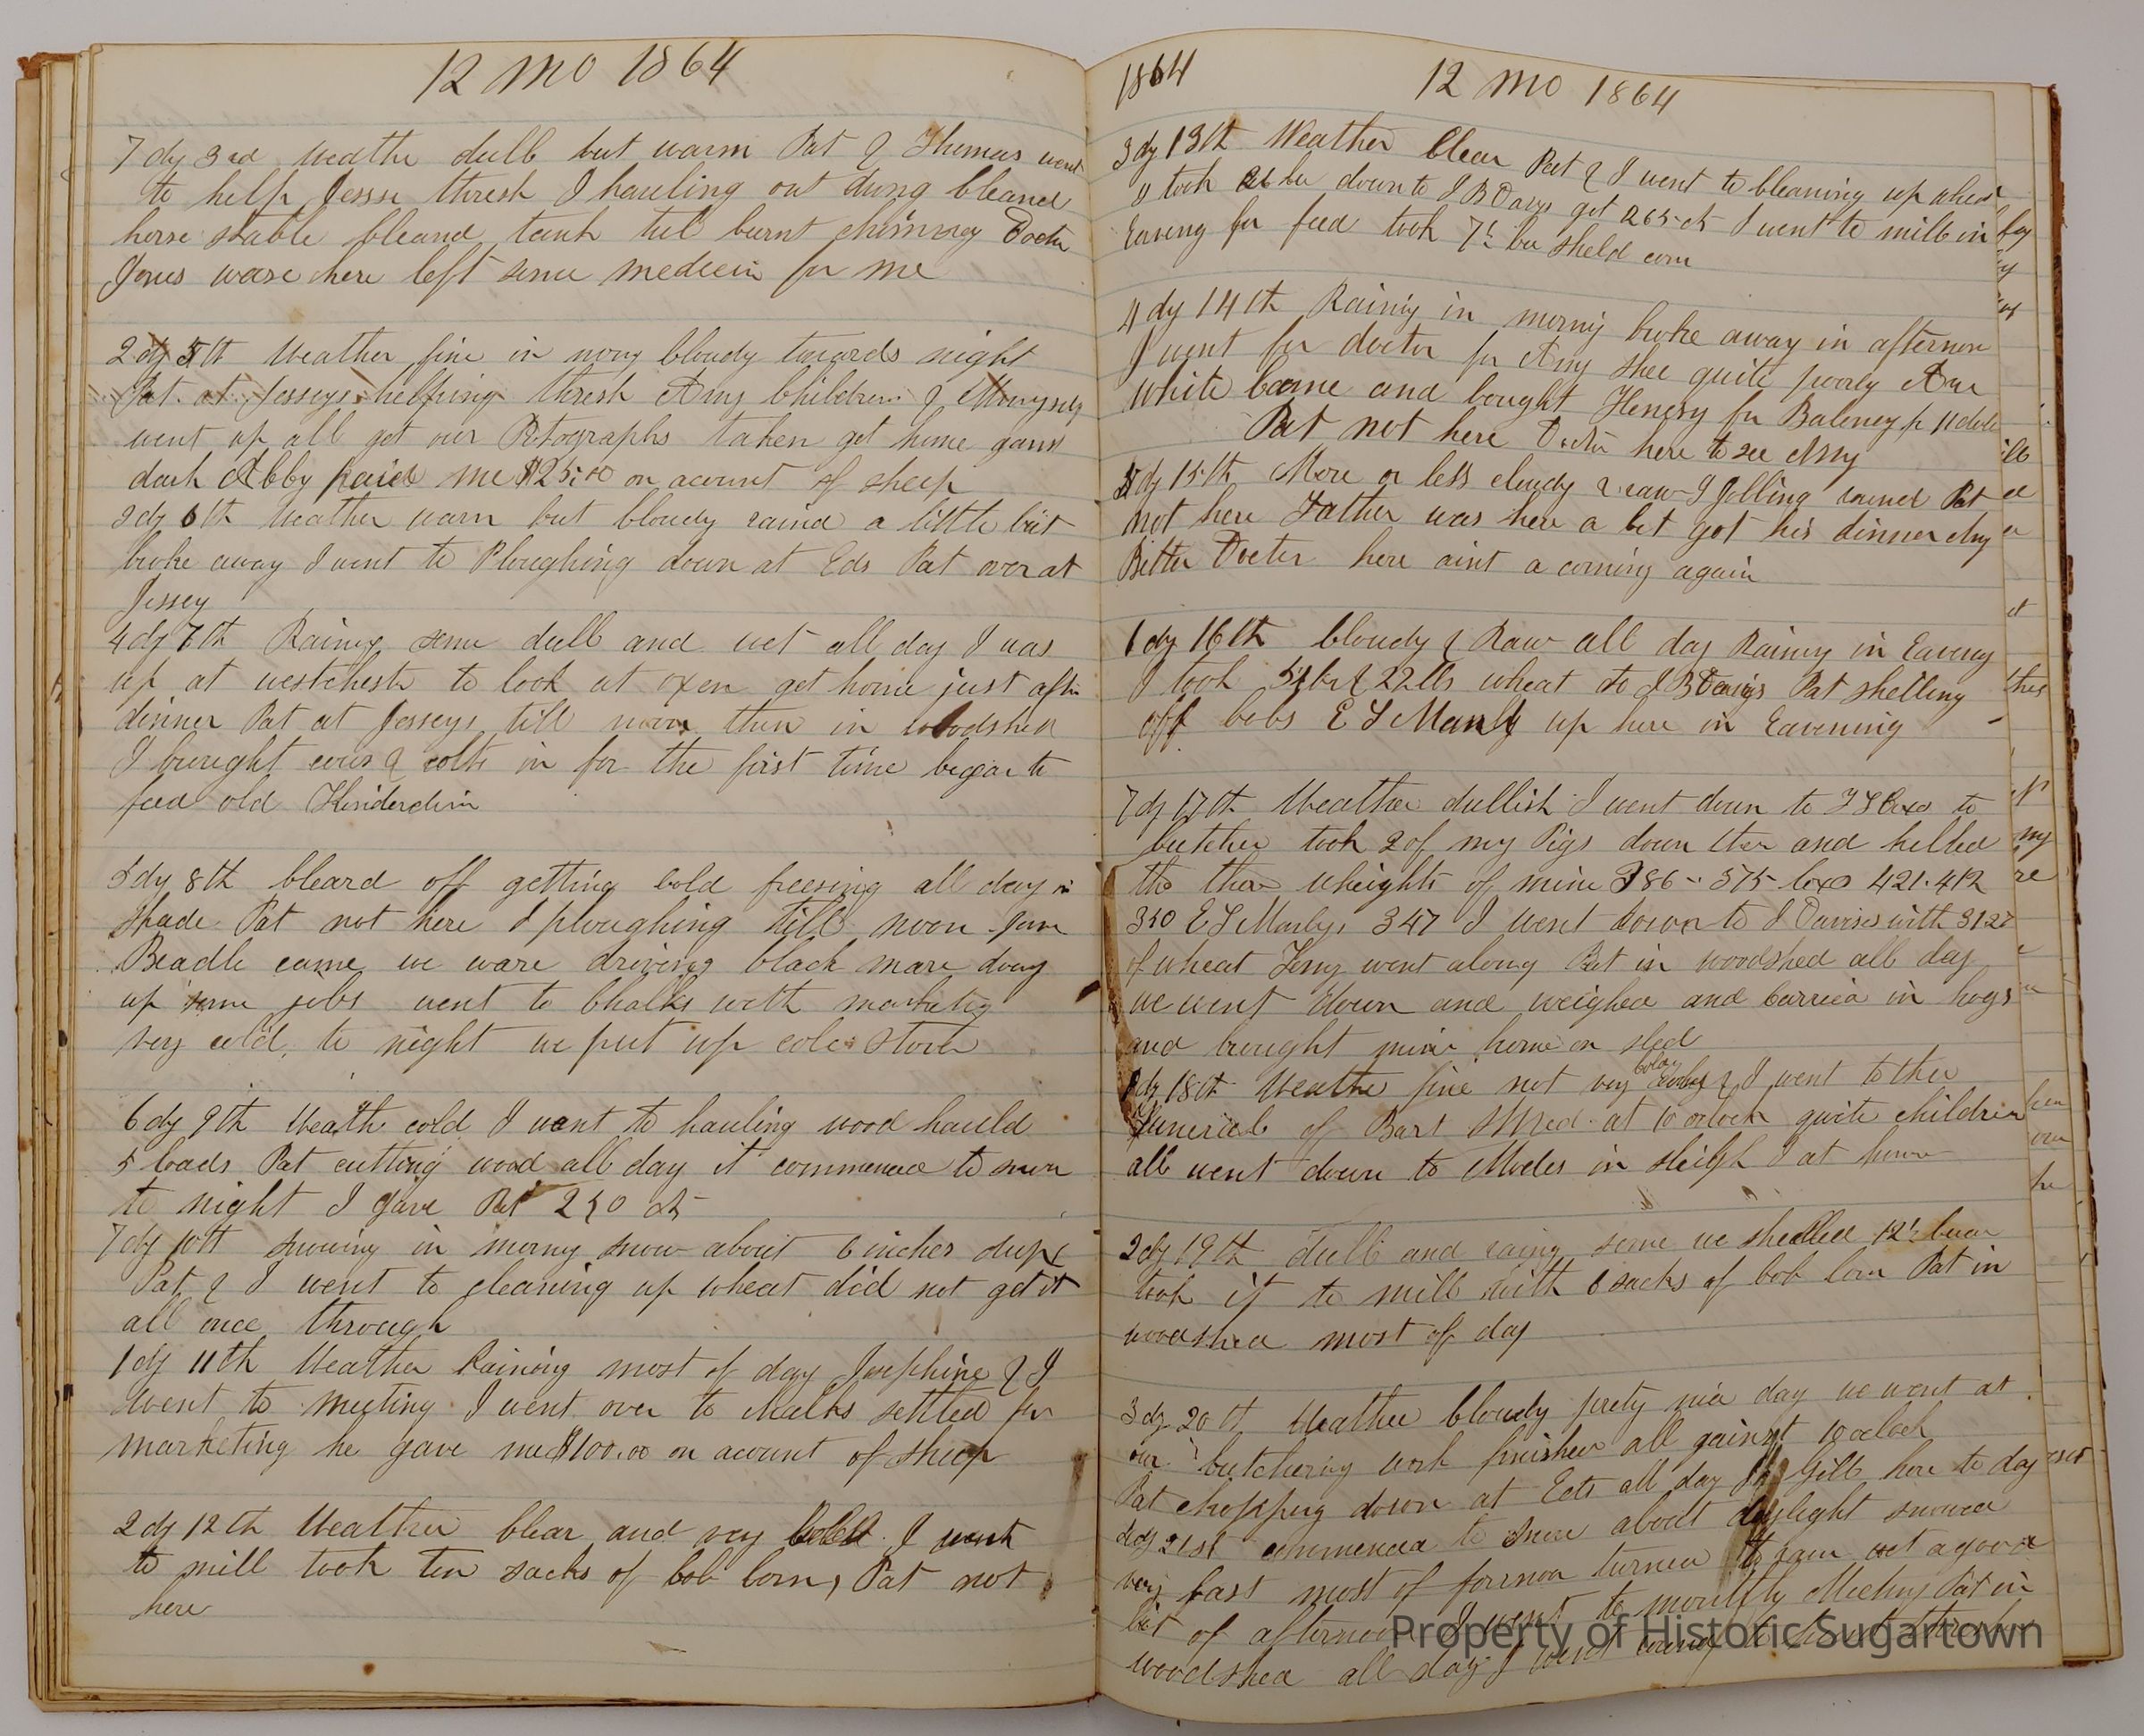 12 mo 1864
7 dy 3rd Weathe dull but warm Pat & Thomas went
to help Jesse thresh I hauling out dung Cleaned
horse stable Cleand tank till burnt chimney Docter
Jones ware here left some medecin for me
2 dy 5th Weather fine in mong Cloudy towards night
Pat at Jesseys helping thresh Amy Children &
went up all got our Potographs taken got home
dark Abby Paid me $25.00 on acount of sheep
3dy 6th Weather warm but Cloudy raind a little but
broke away I went to Ploughing down at Eds Pat over at
Jessey
4dy 7th Rainy some dull and wet all day I was
up at westchester to look at oxen got home just after
dinner Pat at Jesseys till noon then in woodshed
I brought cows & colts in for the first time began to
feed old
5dy 8th Cleard off getting cold freesing all day in
shade Pat not here I ploughing till noon
Beadle came we ware driving black mare doing
up some jobs went to Chalks with marketing
very cold to night we put up cole stove
6dy 9th Weath cold I want to hauling wood hauld
5 loads Pat cutting wood all day it commenced to snow
to night I gave Pat 250 cts
7dy 10th snowing in morng snow about 6 inches deep
Pat & I went to cleaning up wheat did not get it
all once through
1dy 11th Weather Raining most of day Josephine & I
went to meeting I went over to Chalks settled for
marketing he gave me $100.00 on acount of sheep
2dy 12th Weather Clear and very Cold I went
to mill took ten sacks of Cob Corn, Pat not
here
1864 12 mo 1864
3dy 13th Weather Clear Pat & I went to Cleaning up wheat
took 26 bu down to J B Davis got 265 cts I went to mill in
Eavning for feed took 7 bu sheld corn
4dy 14th Rainig in mornig broke away in afternon
I went for docter for Amy shee quite poorly
White Came and bought for
Pat not here Docter here to see Amy
5dy 15th More or less cloudy & raw I Jolling round Pat
not here Father was here a bit got his dinner Amy
Better Docter here aint a coming again
6dy 16th Cloudy & Raw all day Rainey in Eavning
I took bu & 22 lbs wheat to J B Davis Pat shelling
off Cobs E S Manly up here in Eavening
7dy 17th Weather dullish I went down to to
butcher took 2 of my Pigs down ther and killed
the wheights of mine 386 .. 375 421.412
350 E S Manlys 347 I went down to J Davises with
of wheat went along Pat in woodshed all day
we went down and weighed and Carried in hogs
and brought mine home on sled
1dy 18th Weathe fine not very cold & I went to the
Funeral of at 10 oclock quite children
all went down to in sleigh I at home
2dy 19th Dull and raing some we shelled 12
took it to mill with 6 sacks of Cob Corn Pat in
woodshed most of day
3dy 20th Weather Cloudy prety day we went at
our butchering work finished all gainst 10 oclock
Pat chopping down at Eds all day Gill here to day
4dy 21st commenced to snow about daylight snowed
very fast most of fornon turned to rain wet a good
bit of afternoon I went to monthly Meeting Pat in
woodshed all day I went
Property of Historic Sugartown